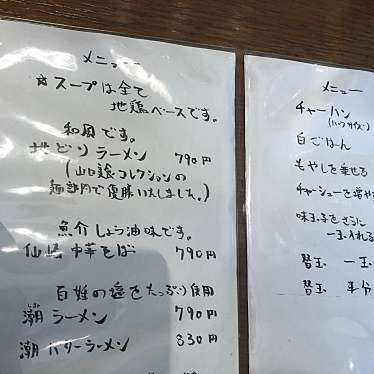 メニュー
☆スープは全て
地鶏ベースです。
和風です。
地どりラーメン 790円
(山口 コレクションの
麺部門で優勝いたしました。)
魚介しょう油味です。
仙崎中華そば 790円
百姓の塩をたっぷり使用
潮ラーメン 790円
潮バターラーメン 830円
メニュー
チャーハン
(ハーフサイズ)
白ごはん
もやしを乗せる
チャーシューを増や
味玉子をさらに
一玉入れる
替玉 一玉
替玉 半分